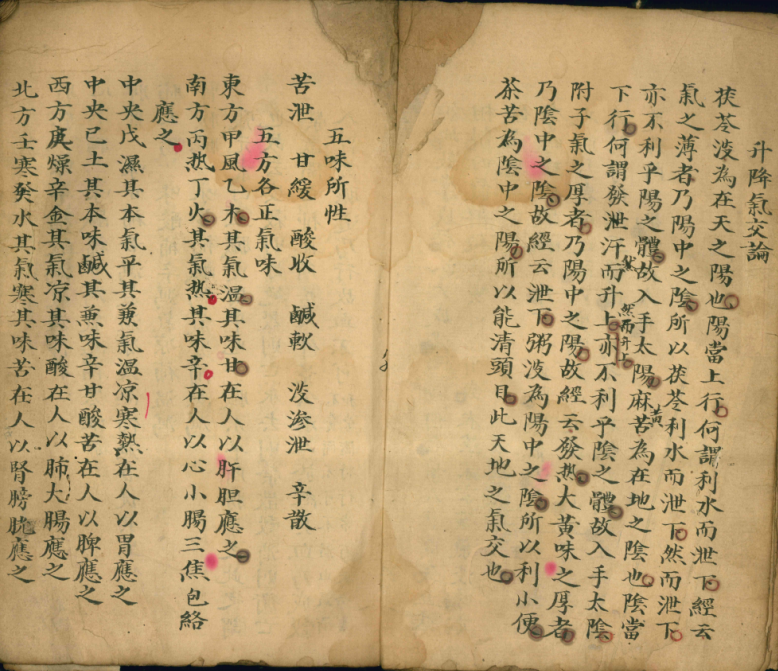 升降氣交論
茯苓淡為在天之陽也陽當上行何謂利水而泄下經云
氣之薄者乃陽中之陰所以茯苓利水而泄下然而泄下
亦不利乎陽之體故入手太陽麻黃苦為在地之陰也陰當
下行何謂發泄汗而升上然而升上亦不利乎陰之體故入手太陰
附子氣之厚者乃陽中之陽故經云發熱大黃味之厚者
乃陰中之陰故經云泄下粥淡為陽中之陰所以利小便
茶苦為陰中之陽所以能清頭目此天地之氣交也
五味所性
苦泄 甘緩 酸收 鹹軟 淡滲泄 辛散
五方各正氣味
東方甲風乙木其氣溫其味甘在人以肝胆應之
南方丙热丁火其氣热其味辛在人以心小腸三焦包絡
應之
中央戊濕其本氣平其兼氣溫凉寒熱在人以胃應之
中央己土其本味鹹其兼味辛甘酸苦在人以脾應之
西方庚燥辛金其氣凉其味酸在人以肺大腸應之
北方壬寒癸水其氣寒其味苦在人以腎膀胱應之